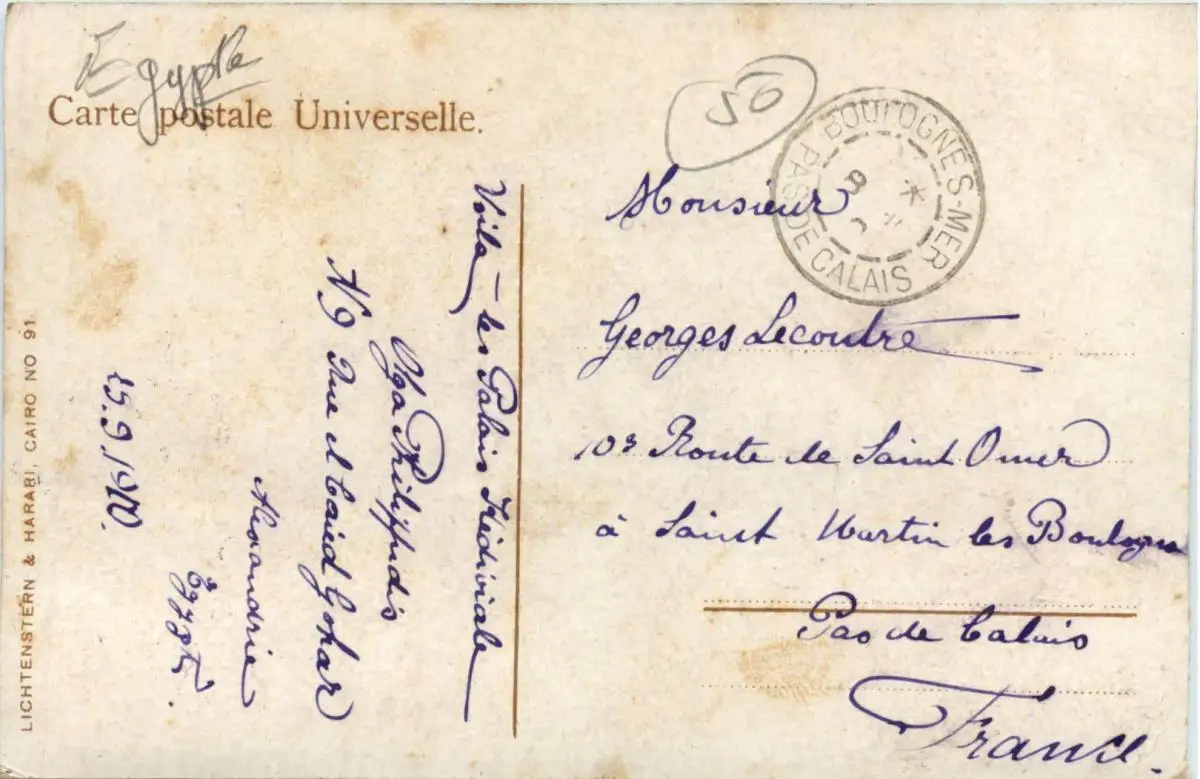 Egypte
Carte postale Universelle.
56
BOULOGNE-S-MER
PAS DE CALAIS
8
Voila - les Palais Kédiviale
Olga Philippidis
N9 Rue el Caied Gohar
Alexandrie
Egypte.
25.9/1910.
Monsieur
Georges Lecoutre
Route de Saint Omer
à Saint Martin les Boulogne
Pas de Calais
France.
LICHTENSTERN & HARARI, CAIRO NO 91